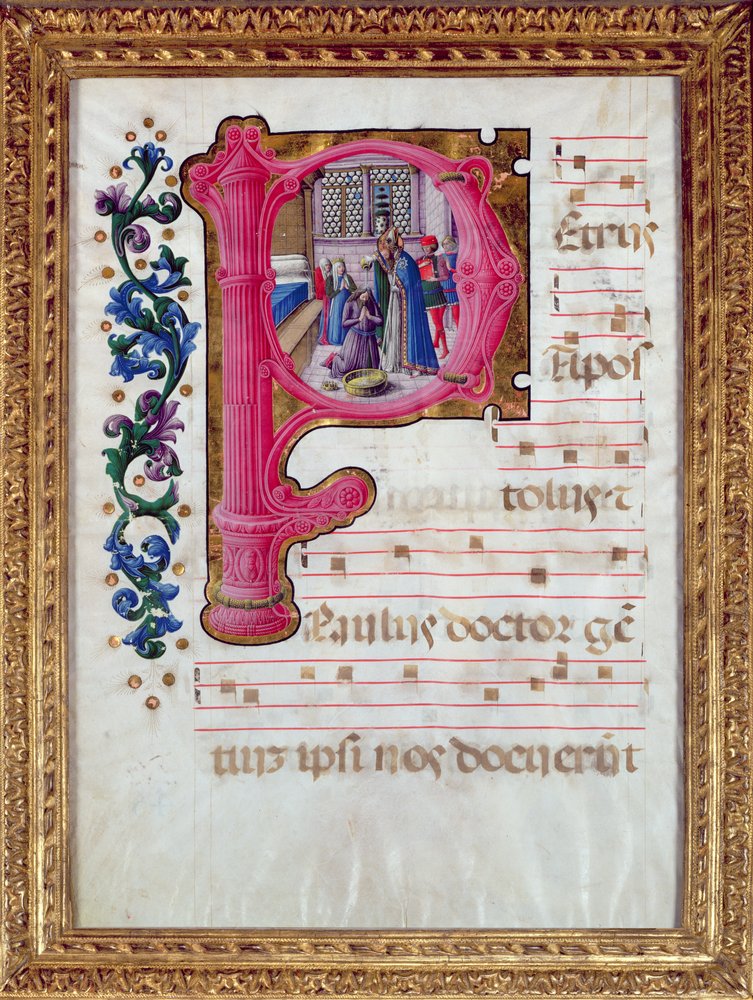 Etrus
Apos
tolus ⁊
Paulus doctor gē
tiuꝫ ipsi nos docuerūt